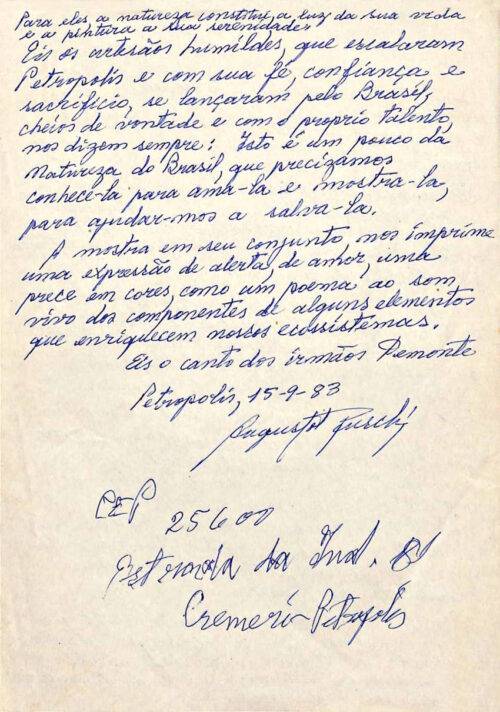 Para eles a natureza constitui a luz da sua vida
e a pintura a sua serenidade.
Eis os artesãos humildes, que escalaram
Petropolis e com sua fé, confiança e
sacrificio, se lançaram pelo Brasil,
cheios de vontade e com o proprio talento,
nos dizem sempre: Isto é um pouco da
Natureza do Brasil, que precizamos
conhece-la para ama-la e mostra-la,
para ajudar-mos a salva-la.
A mostra em seu conjunto, nos imprime
uma expressão de alerta, de amor, uma
prece em cores, como um poema ao som
vivo dos componentes de alguns elementos
que enriquecem nossos ecossistemas.
Eis o canto dos irmãos Demonte
Petropolis, 15-9-83
Augusto Ruschi
CEP
25600
Estrada da
Cremerí - Petropolis